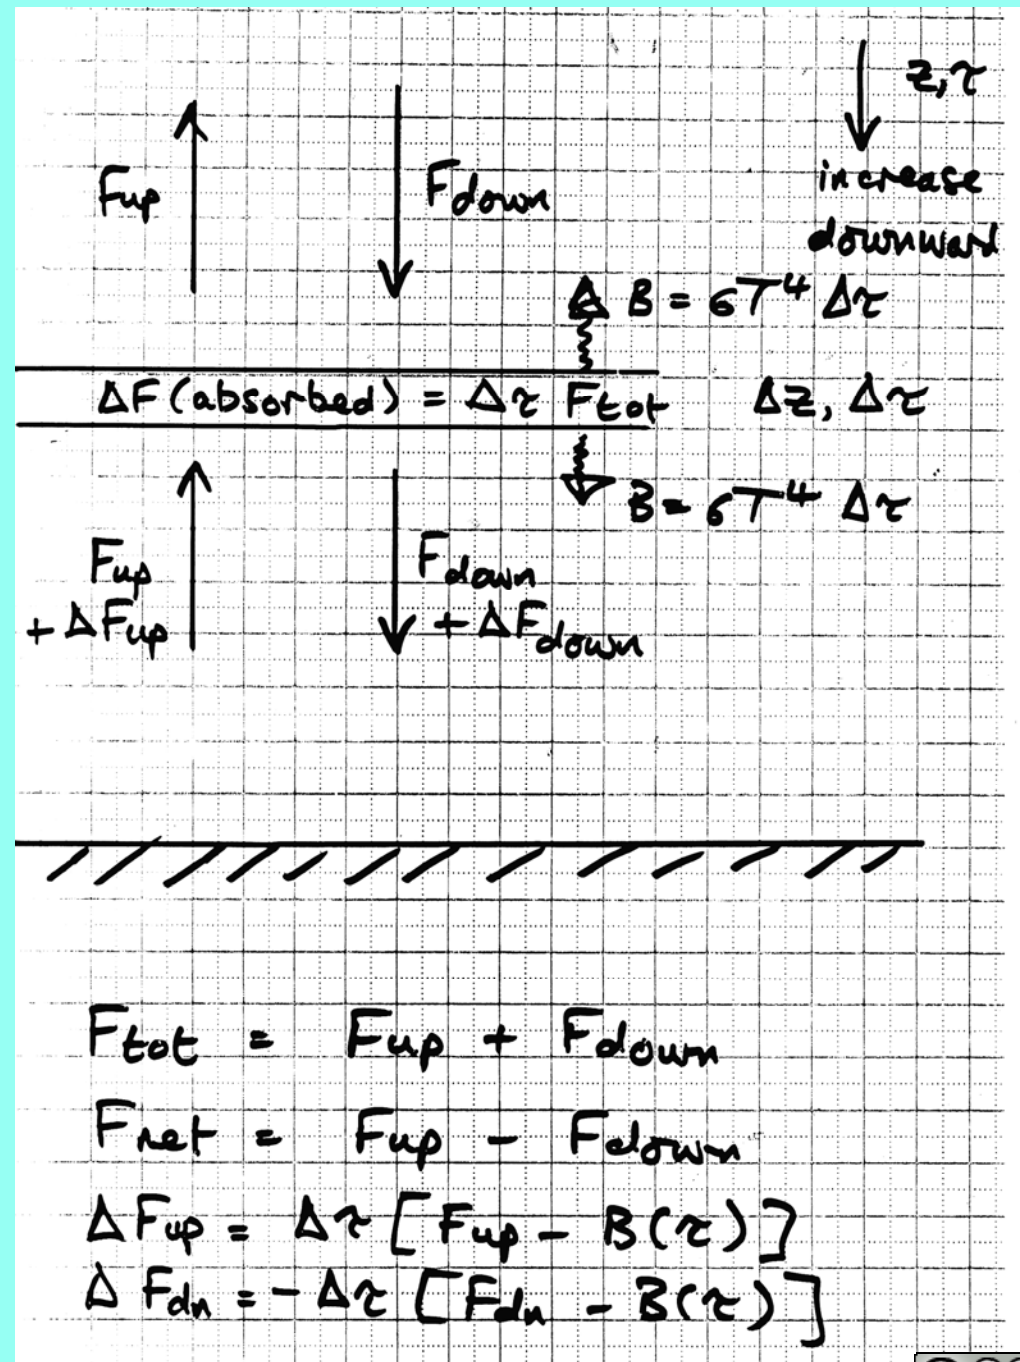 z, τ
Fup
Fdown
increase
downward
B = σT⁴ Δτ
ΔF (absorbed) = Δτ Ftot
Δz, Δτ
B = σT⁴ Δτ
Fup
+ ΔFup
Fdown
+ ΔFdown
Ftot = Fup + Fdown
Fnet = Fup - Fdown
ΔFup = Δτ [Fup - B(τ)]
Δ Fdn = - Δτ [Fdn - B(τ)]